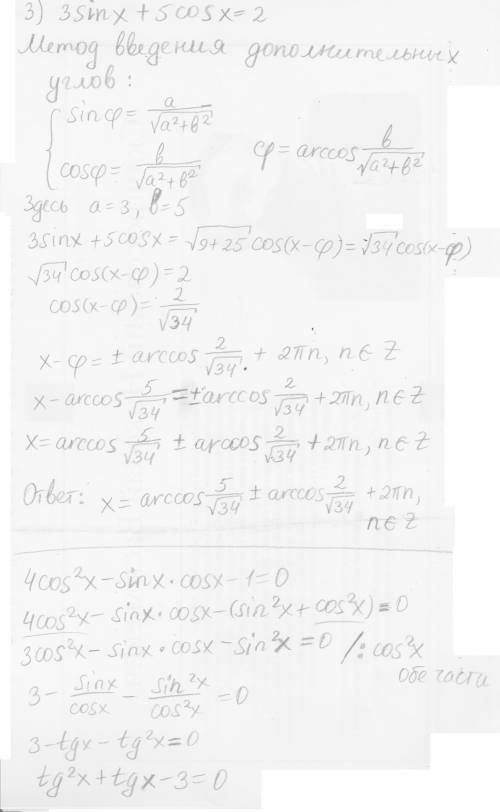 3) 3sinx + 5cosx = 2
Метод введения дополнительных
углов:
{ sinφ = a/√(a²+b²)
cosφ = b/√(a²+b²)   φ = arccos b/√(a²+b²)
Здесь a = 3, b = 5
3sinx + 5cosx = √(9+25) cos(x-φ) = √34 cos(x-φ)
√34 cos(x-φ) = 2
cos(x-φ) = 2/√34
x-φ = ± arccos 2/√34 + 2πn, n∈Z
x - arccos 5/√34 = ± arccos 2/√34 + 2πn, n∈Z
x = arccos 5/√34 ± arccos 2/√34 + 2πn, n∈Z
Ответ: x = arccos 5/√34 ± arccos 2/√34 + 2πn,
n∈Z
4cos²x - sinx·cosx - 1 = 0
4cos²x - sinx·cosx - (sin²x + cos²x) = 0
3cos²x - sinx·cosx - sin²x = 0 /: cos²x
обе части
3 - sinx/cosx - sin²x/cos²x = 0
3 - tgx - tg²x = 0
tg²x + tgx - 3 = 0